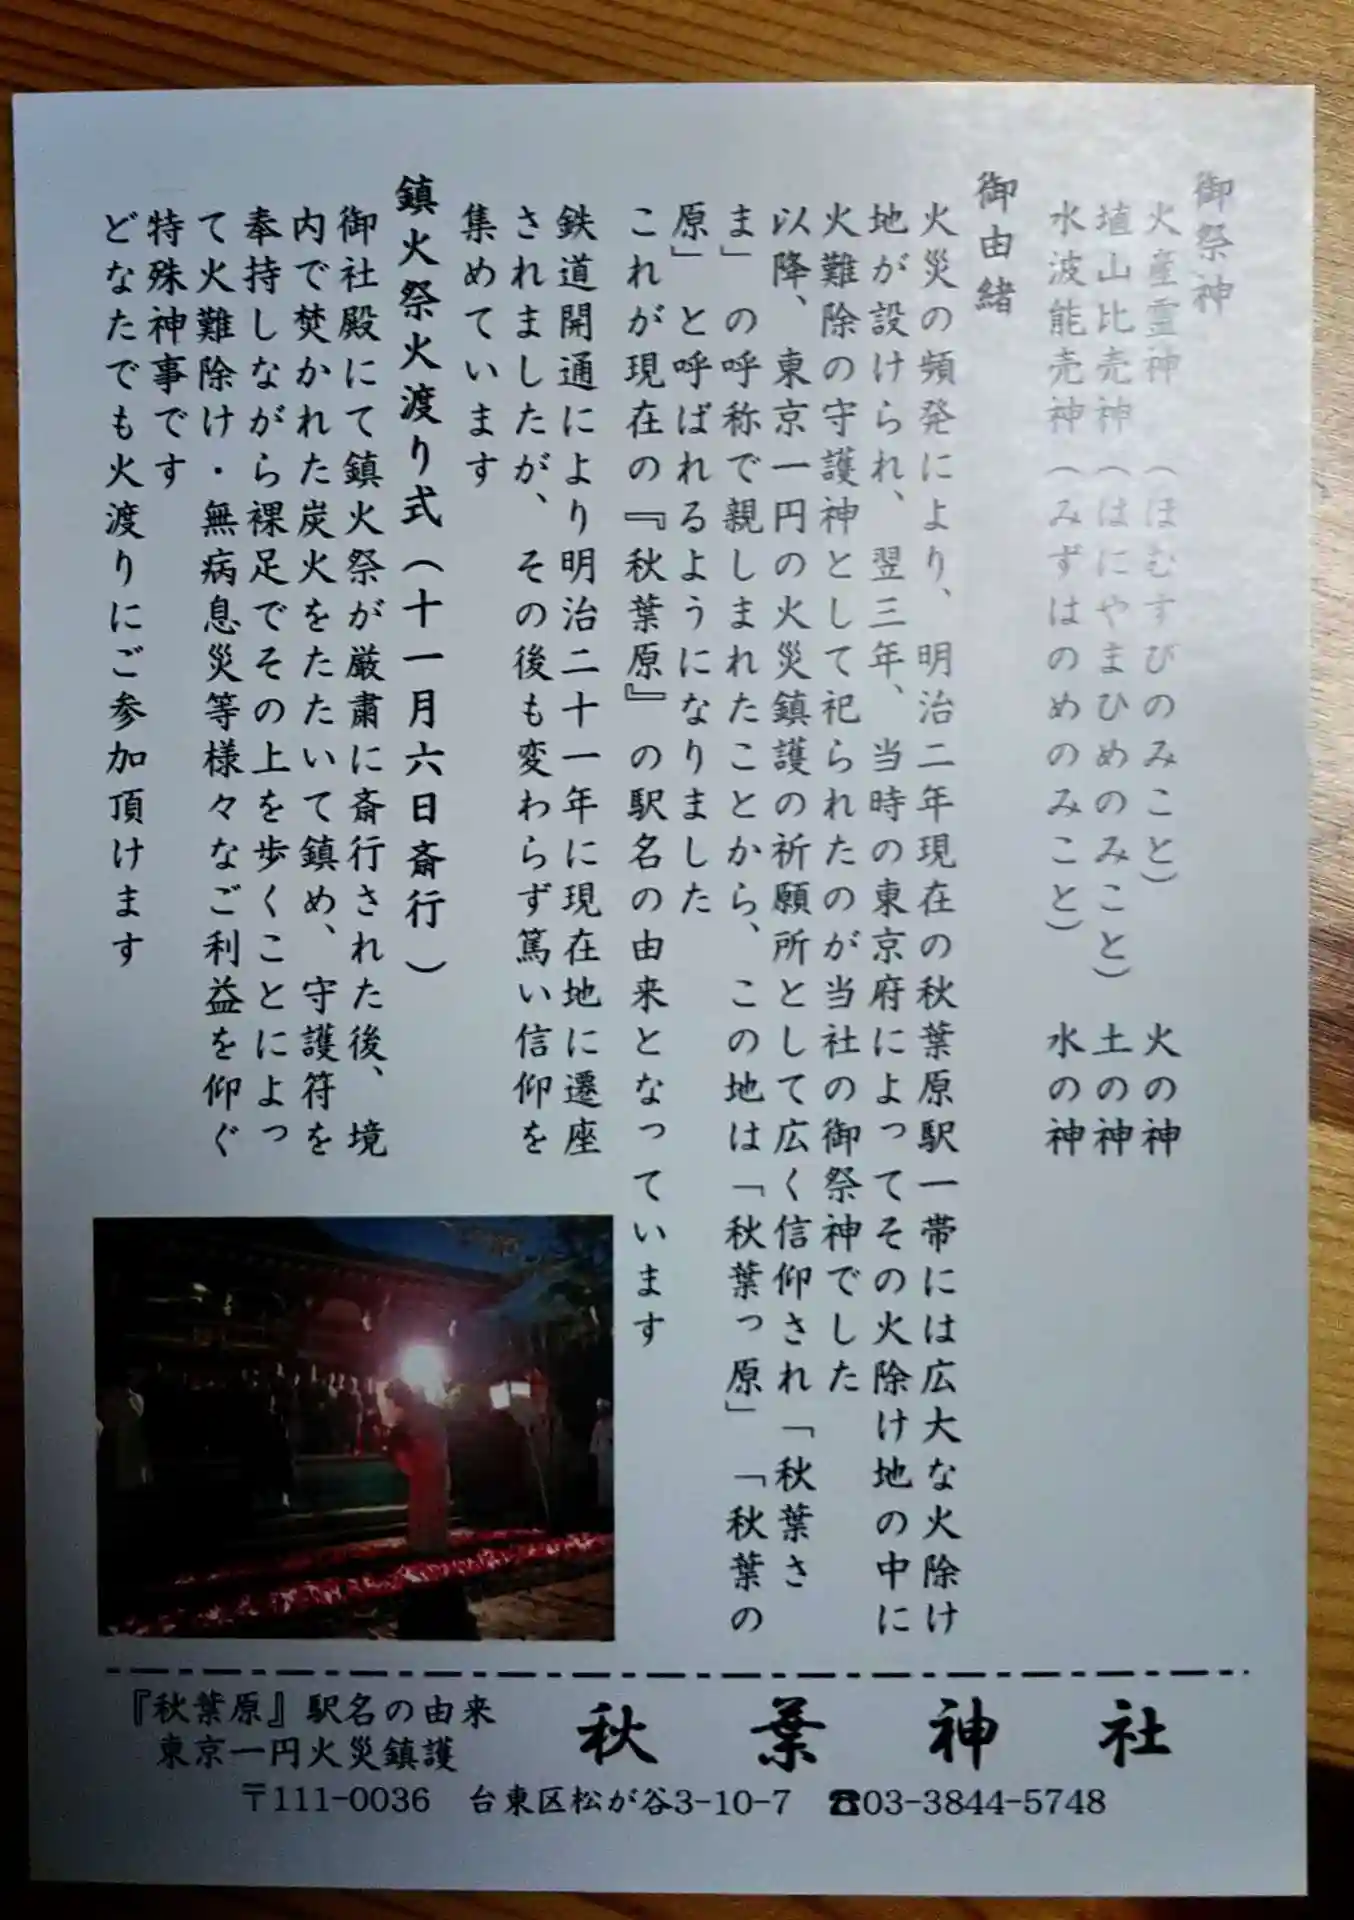 御祭神
火産霊神　（ほむすびのみこと）　火の神
埴山比売神（はにやまひめのみこと）　土の神
水波能売神（みずはのめのみこと）　水の神
御由緒
火災の頻発により、明治二年現在の秋葉原駅一帯には広大な火除け
地が設けられ、翌三年、当時の東京府によってその火除け地の中に
火難除の守護神として祀られたのが当社の御祭神でした
以降、東京一円の火災鎮護の祈願所として広く信仰され「秋葉さ
ま」の呼称で親しまれたことから、この地は「秋葉っ原」「秋葉の
原」と呼ばれるようになりました
これが現在の『秋葉原』の駅名の由来となっています
鉄道開通により明治二十一年に現在地に遷座
されましたが、その後も変わらず篤い信仰を
集めています
鎮火祭火渡り式（十一月六日斎行）
御社殿にて鎮火祭が厳粛に斎行された後、境
内で焚かれた炭火をたたいて鎮め、守護符を
奉持しながら裸足でその上を歩くことによっ
て火難除け・無病息災等様々なご利益を仰ぐ
特殊神事です
どなたでも火渡りにご参加頂けます
『秋葉原』駅名の由来
東京一円火災鎮護
秋葉神社
〒111-0036　台東区松が谷3-10-7　☎03-3844-5748